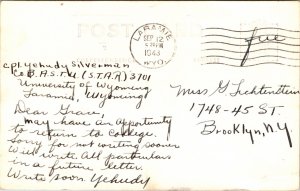 POST CARD
LARAMIE
SEP 12
1943
WYO.
free
cpl yehudy silverman
Co. B. A.S.T.U (S.T.A.R) 3701
University of Wyoming
Laramie, Wyoming
Dear Grace,
may have an opportunity
to return to college.
Sorry for not writing sooner
Will write all particulars
in a future letter.
Write soon. Yehudy
Miss G Lichtenstein
1748-45 ST.
Brooklyn, N.Y